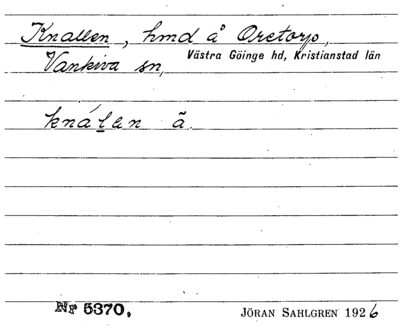 Knallen, hmd å Oretorp,
Vankiva sn, Västra Göinge hd, Kristianstad län
knálen ā.
NF 5370.
JÖRAN SAHLGREN 1926